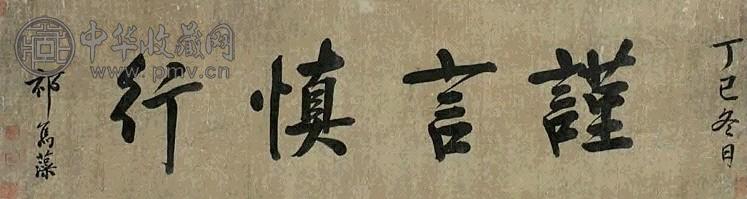 丁巳冬日
謹言慎行
祁寯藻
中华收藏网
www.pmv.cn